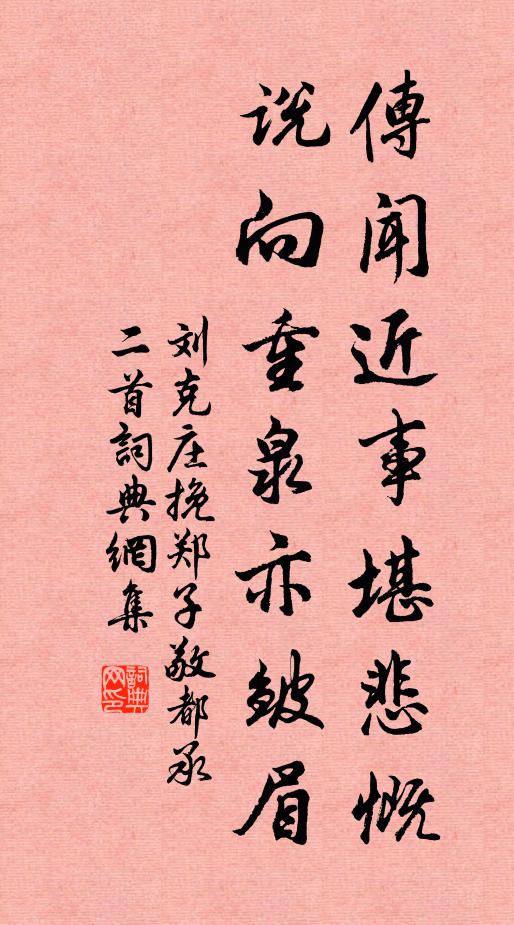 傳闻近事堪悲慨
说向重泉亦皱眉
刘克庄挽郑子敬都承
二首詞典網集
詞典网印